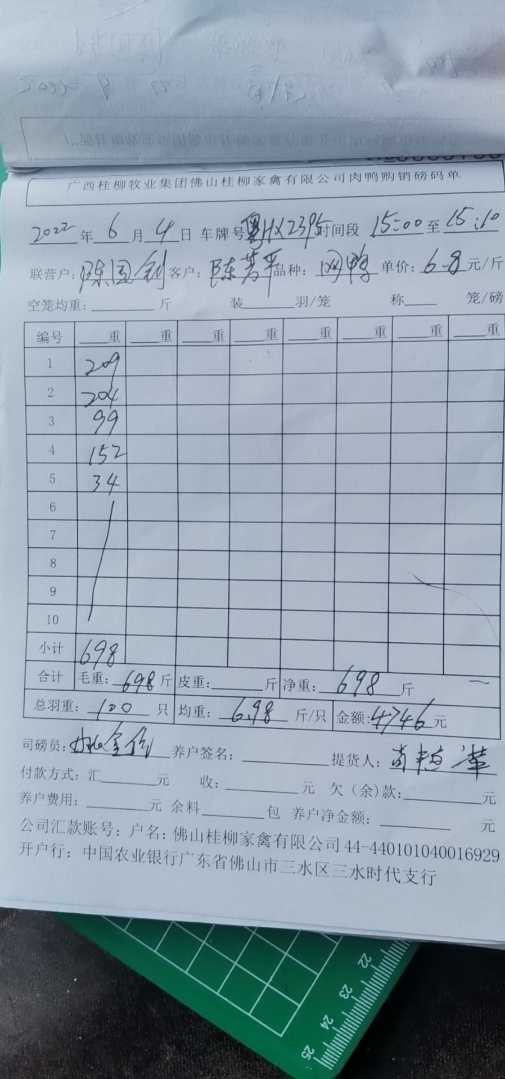 广西桂柳牧业集团佛山桂柳家禽有限公司肉鸭购销磅码单
2022年 6 月 4 日 车牌号 时间段 15:00 至 15:10
联营户: 陈国钊 客户: 陈芳平 品种: 网鸭 单价: 6.8 元/斤
空笼均重: 斤 装 羽/笼 称 笼/磅
编号 重 重 重 重 重 重
1 209
2 204
3 99
4 152
5 34
6
7
8
9
10
小计 698
合计 毛重: 698 斤 皮重: 斤 净重: 698 斤
总羽重: 100 只 均重: 6.98 斤/只 金额: 4746 元
司磅员: 养户签名: 提货人:
付款方式: 汇 元 收: 元 欠(余)款: 元
养户费用: 元 余料 包 养户净金额: 元
公司汇款账号: 户名: 佛山桂柳家禽有限公司 44-440101040016929
开户行: 中国农业银行广东省佛山市三水区三水时代支行
22
23
24
25